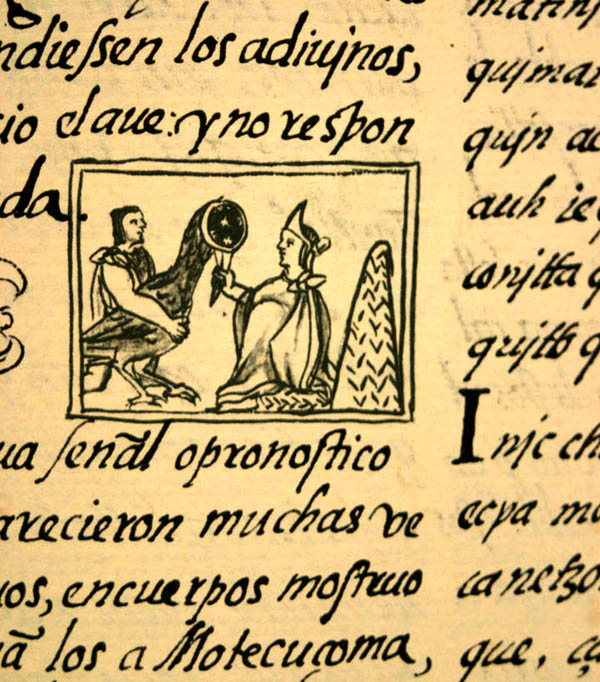 ndieſſen los adiujnos,
io el aue: y no reſpon
da.
ua ſenal o pronoſtico
arecieron muchas ve
os, en cuerpos moſtruo
ã los a Motecuçoma,
matinj
qujmat
qujn ac
auh ie
conjtta q
qujtto q
Injc ch
ecpa m
ca netzo
que, ça